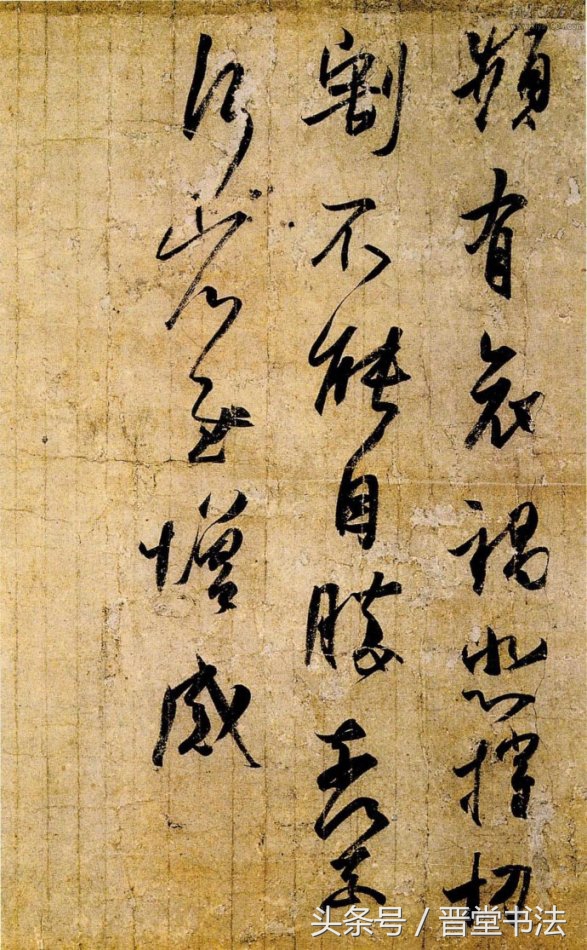 頻有哀禍悲摧切
割不能自勝奈何奈
何省慰增感
头条号 / 晋堂书法